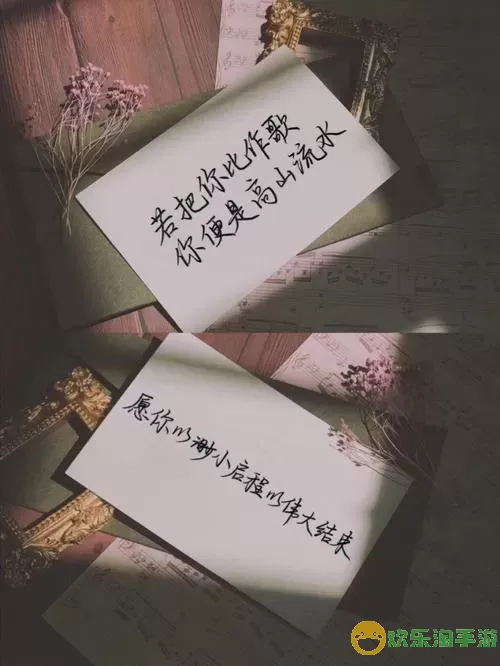 若把你比作歌
你便是高山流水
愿你以渺小启程以伟大结束
欢乐淘手游